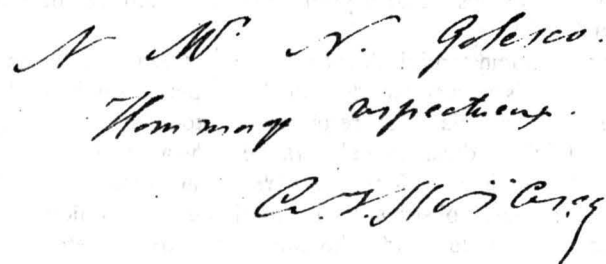 A Mr N. Golesco.
Hommage respectueux.